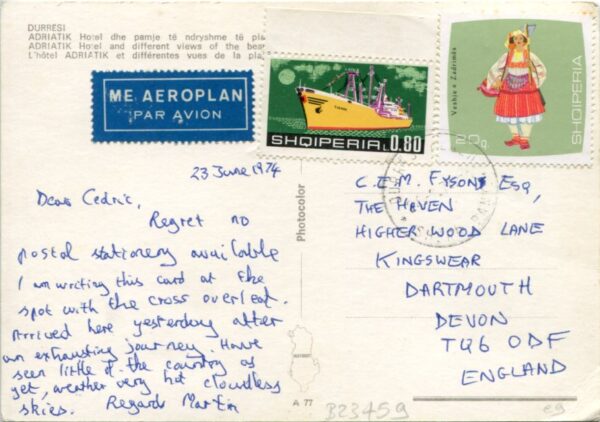 DURRESI
ADRIATIK Hotel dhe pamje të ndryshme të pla
ADRIATIK Hotel and different views of the bea
L'hôtel ADRIATIK et différentes vues de la pla
ME AEROPLAN
PAR AVION
SHQIPERIA L 0.80
Veshje e Zadrimës
20q.
SHQIPERIA
23 June 1974
Dear Cedric,
Regret no
postal stationery available
I am writing this card at the
spot with the cross overleaf.
Arrived here yesterday after
an exhausting journey. Have
seen little of the country as
yet, weather very hot cloudless
skies. Regards Martin
Photocolor
C.E.M. FYSON Esq,
THE HAVEN
HIGHER WOOD LANE
KINGSWEAR
DARTMOUTH
DEVON
TQ6 0DF
ENGLAND
A 77
B23459